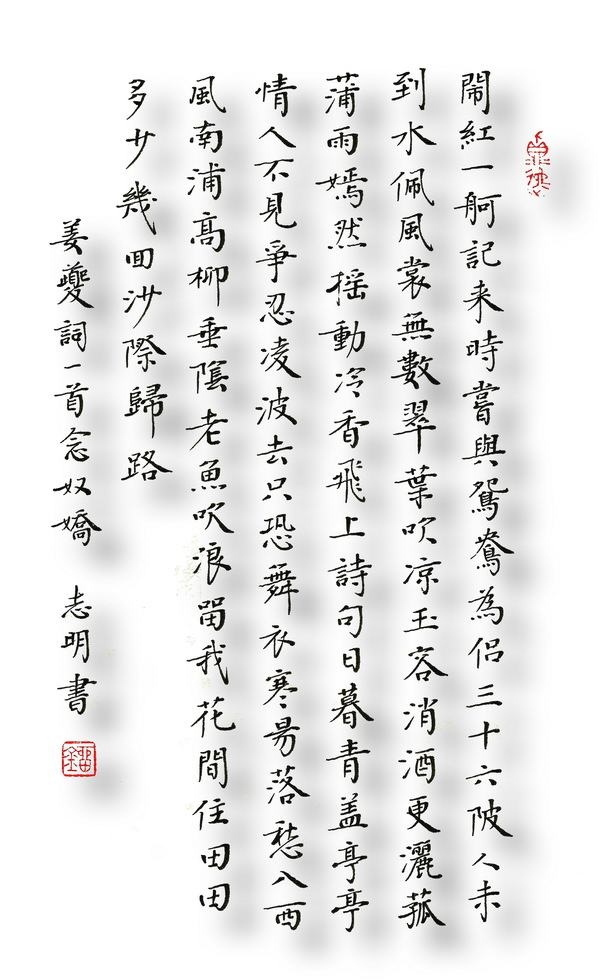 鬧紅一舸記来時嘗與鴛鴦為侶三十六陂人未
到水佩風裳無數翠葉吹凉玉容消酒更灑菰
蒲雨嫣然摇動冷香飛上詩句日暮青盖亭亭
情人不見爭忍凌波去只恐舞衣寒易落愁入西
風南浦高柳垂陰老魚吹浪留我花間住田田
多少幾回沙際歸路
姜夔詞一首念奴嬌 志明書